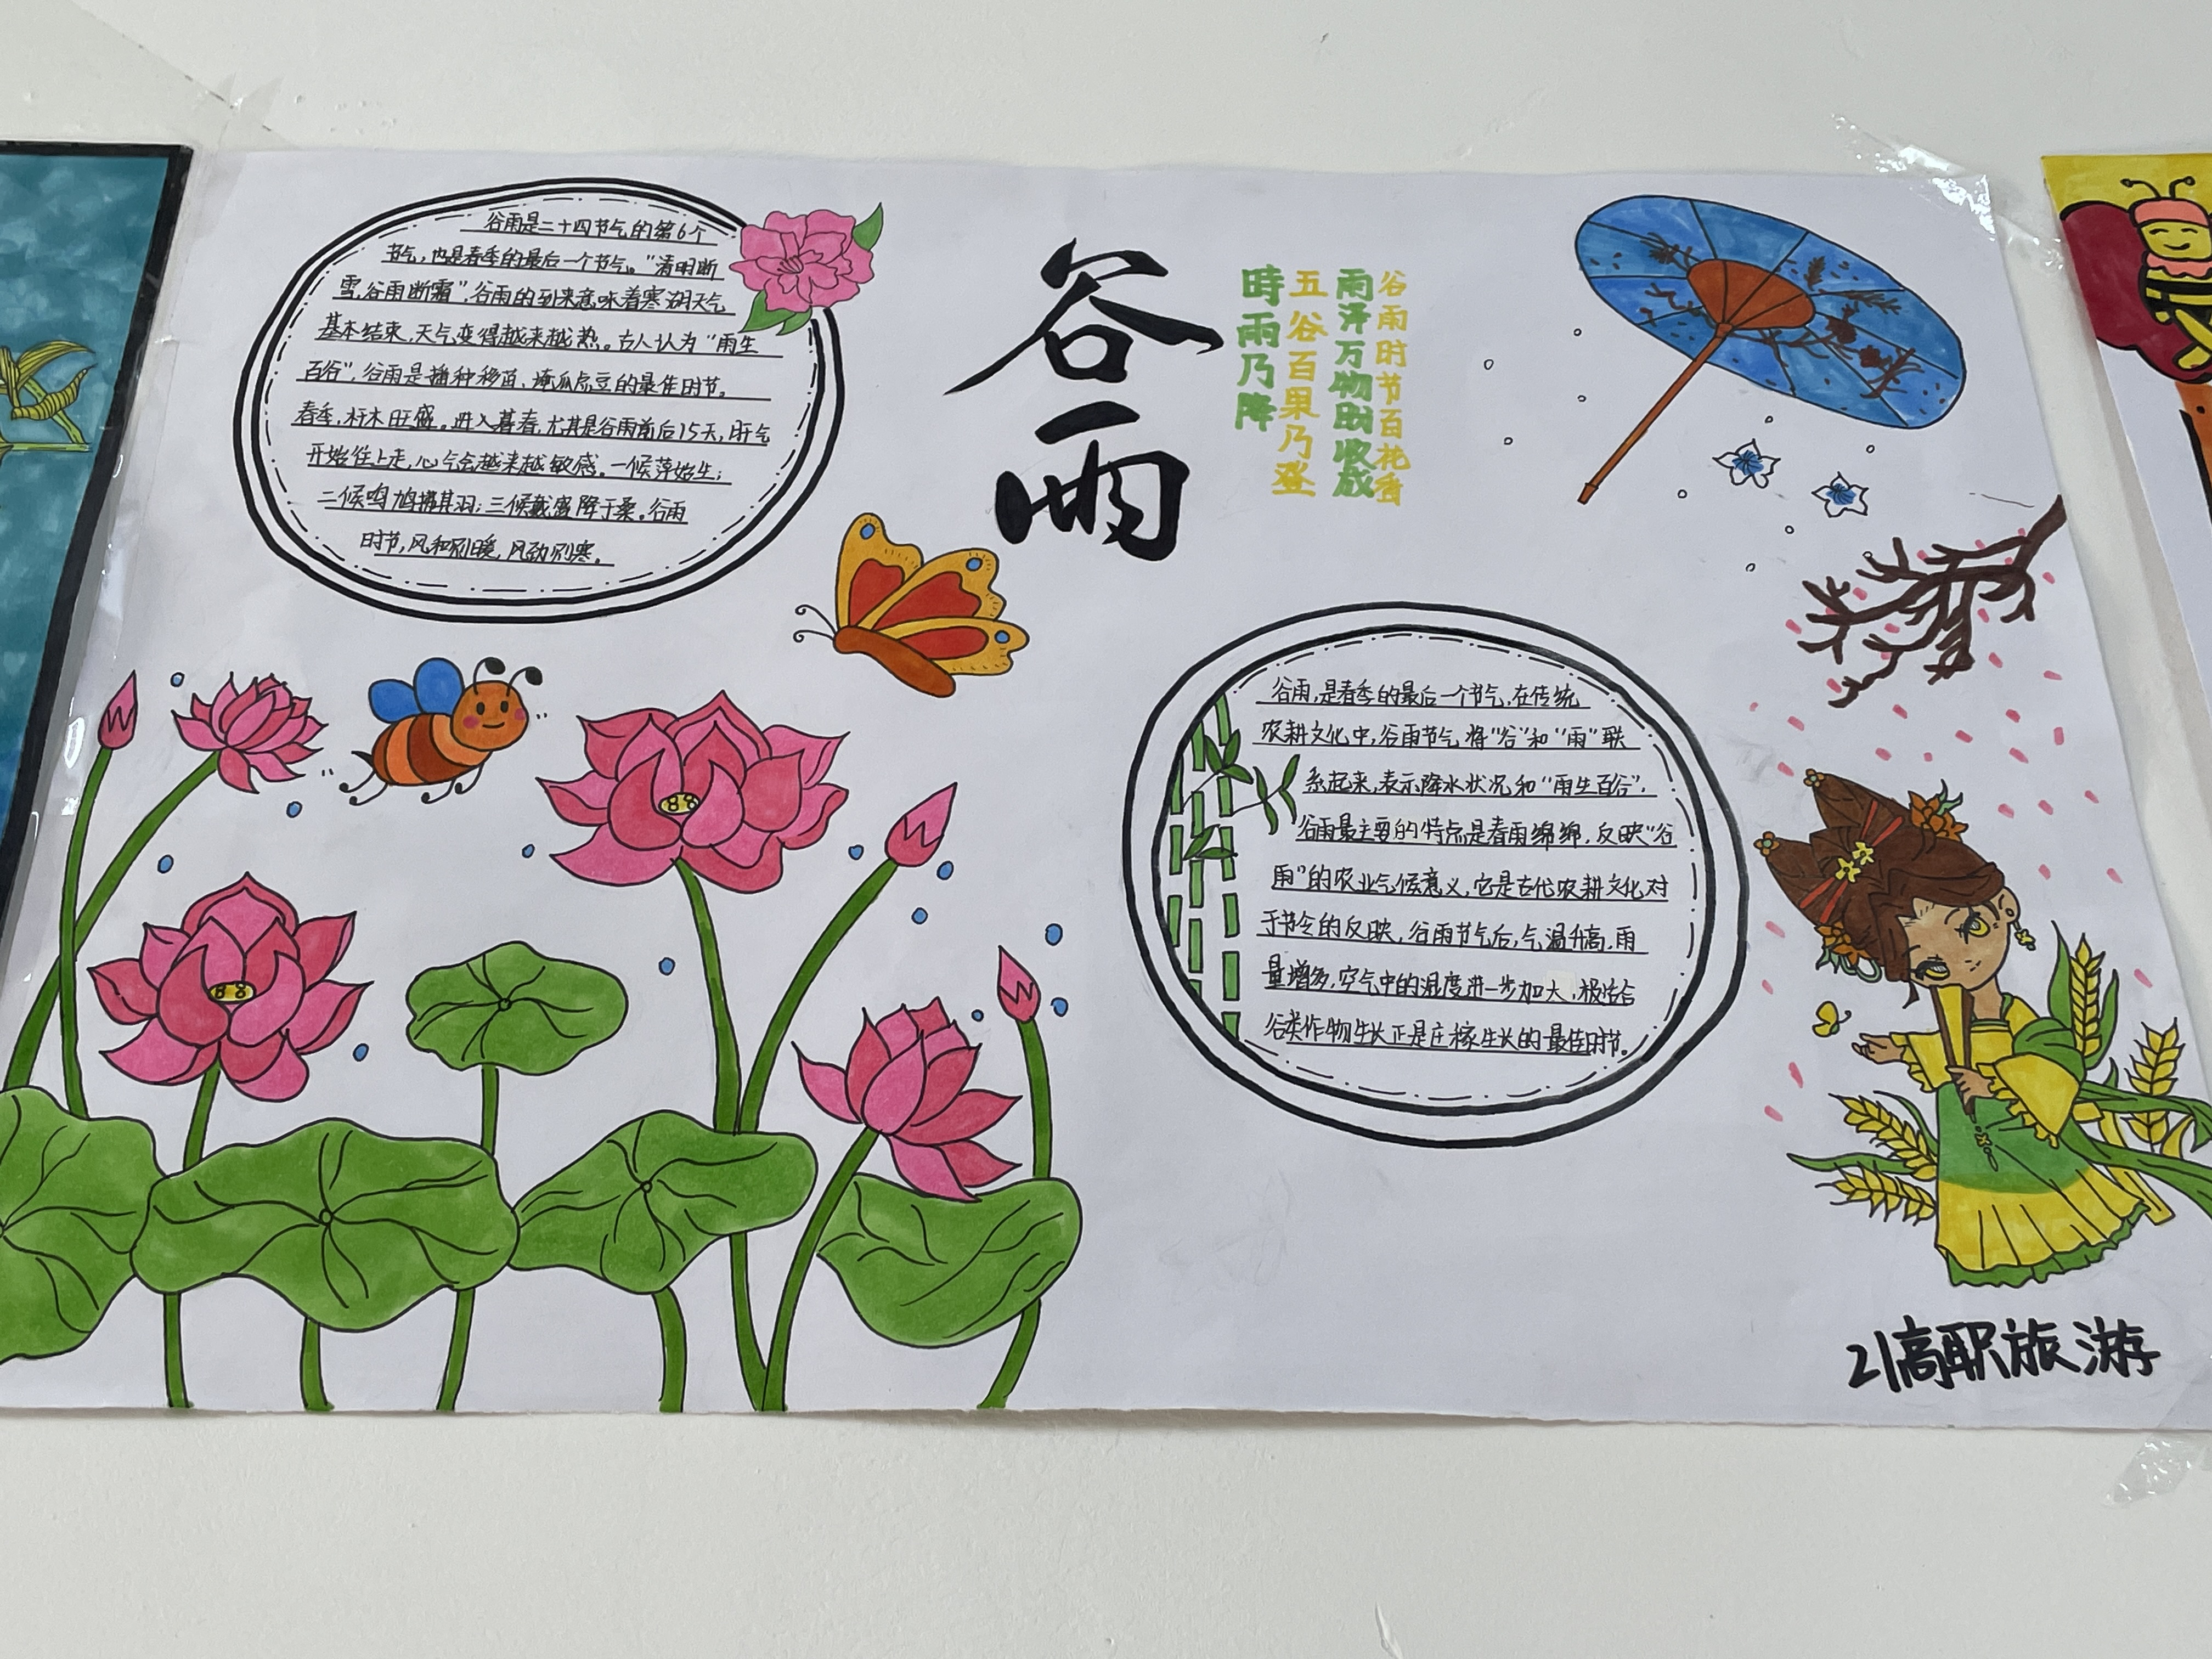 谷雨是二十四节气的第6个
节气，也是春季的最后一个节气。"清明断
雪，谷雨断霜"，谷雨的到来意味着寒湖天气
基本结束，天气变得越来越热。古人认为"雨生
百谷"，谷雨是播种移苗、掩瓜点豆的最佳时节。
春季，杆木旺盛。进入暮春，尤其是谷雨前后15天，肝气
开始往上走，心气会越来越敏感。一候萍始生；
二候鸣鸠拂其羽；三候戴胜降于桑。谷雨
时节，风和则暖，风劲则寒。
谷雨
谷雨时节百花香
雨泽万物助收成
五谷百果乃登
時雨乃降
谷雨，是春季的最后一个节气，在传统
农耕文化中，谷雨节气将"谷"和"雨"联
系起来，表示降水状况和"雨生百谷"，
谷雨最主要的特点是春雨绵绵，反映"谷
雨"的农业气候意义，它是古代农耕文化对
于节令的反映，谷雨节气后，气温升高，雨
量增多，空气中的湿度进一步加大，极适合
谷类作物生长正是庄稼生长的最佳时节。
21高职旅游